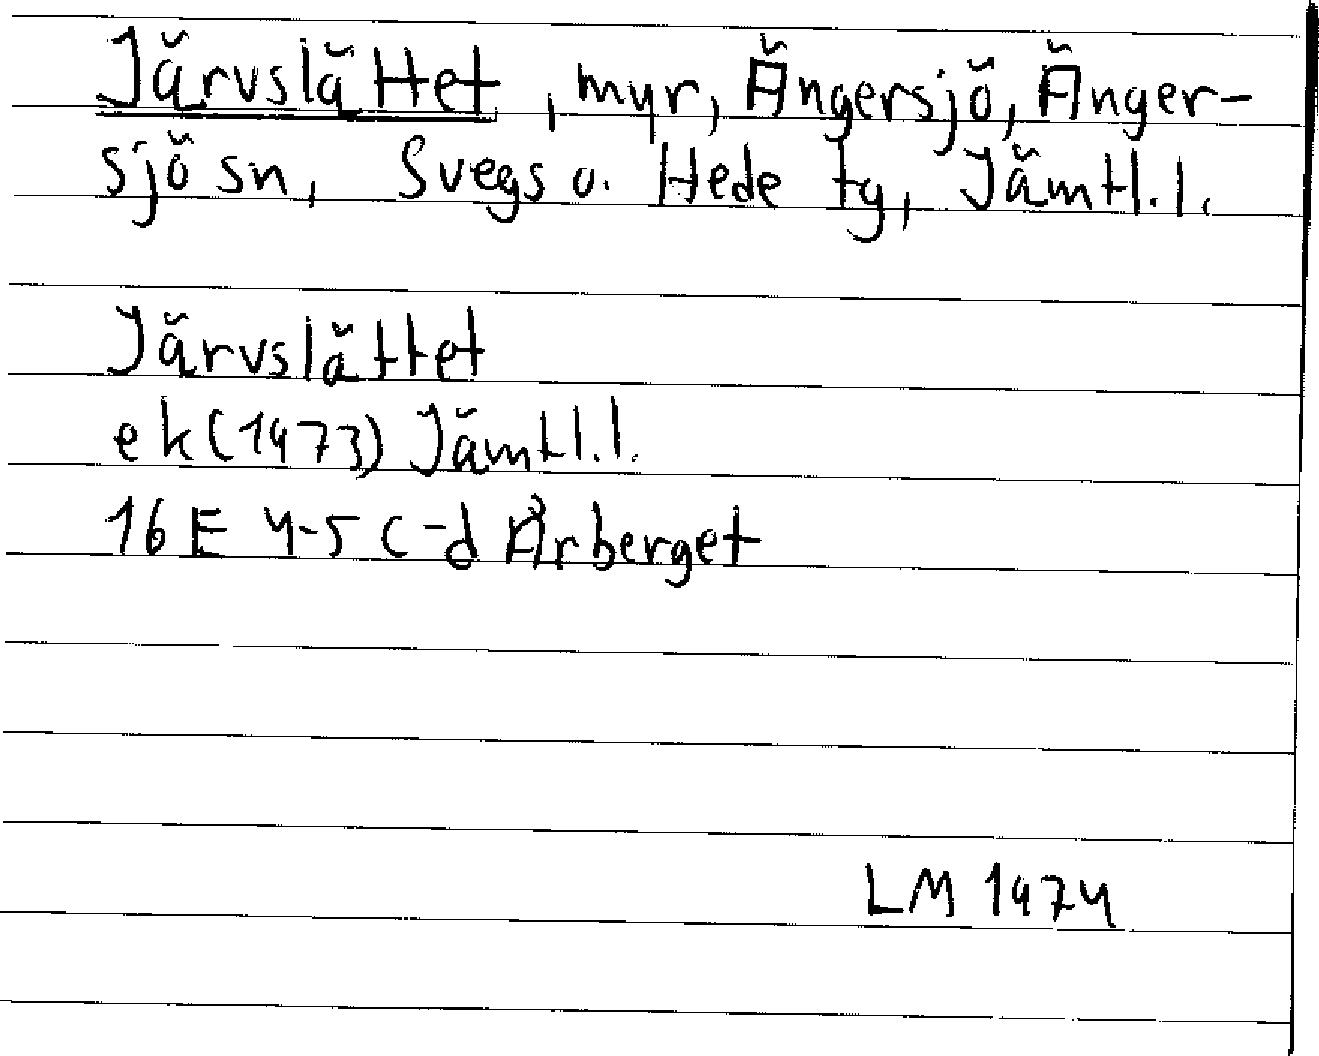 Järvslättet, myr, Ängersjö, Änger-
sjö sn, Svegs o. Hede tg, Jämtl.l.
Järvslättet
ek (1973) Jämtl.l.
16 E 4-5 c-d Årberget
LM 1974